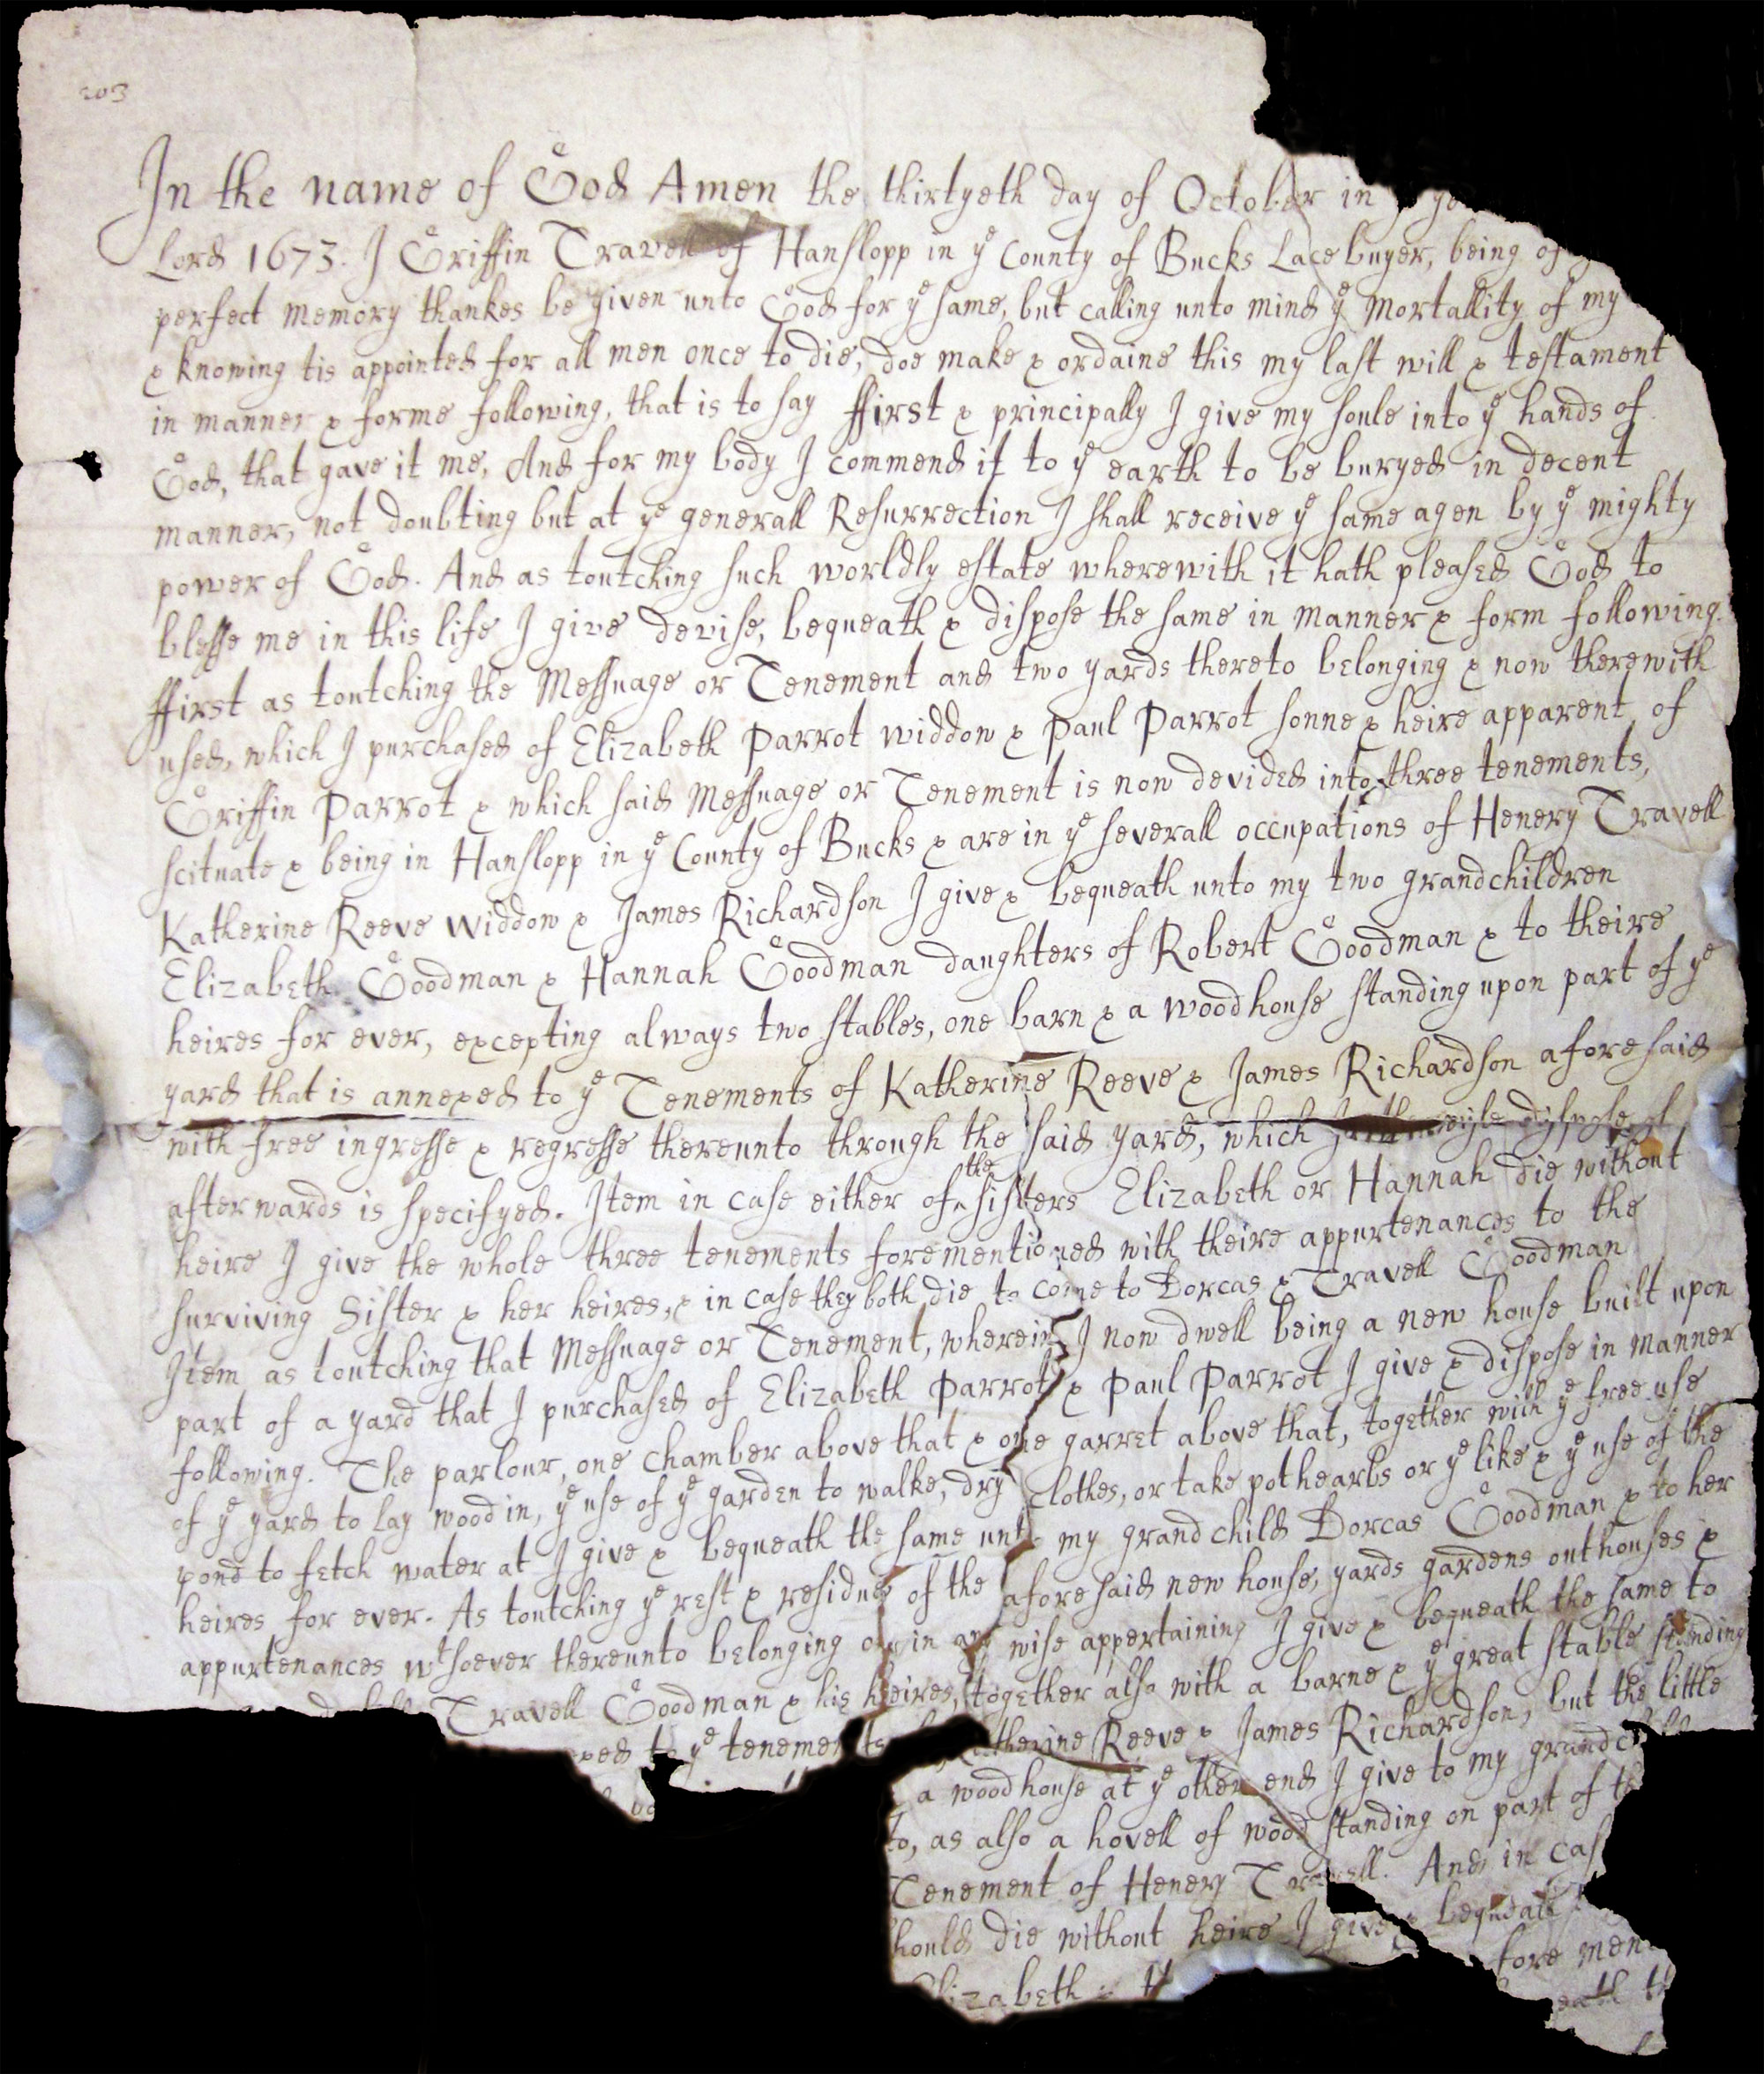 203
In the name of God Amen the thirtyeth day of October in
Lord 1673. I Griffin Travell of Hanslopp in ye County of Bucks Lace buyer, being of
perfect memory thankes be given unto God for ye same, but calling unto mind ye Mortallity of my
& knowing tis appointed for all men once to die, doe make & ordaine this my last will & testament
in manner & forme following, that is to say ffirst & principally I give my soule into ye hands of
God, that gave it me, And for my body I commend it to ye earth to be buryed in decent
manner, not doubting but at ye generall Resurrection I shall receive ye same agen by ye mighty
power of God. And as toutching such worldly estate wherewith it hath pleased God to
blesse me in this life I give devise, bequeath & dispose the same in manner & form following.
ffirst as toutching the Messuage or Tenement and two yards thereto belonging & now therewith
used, which I purchased of Elizabeth Parrot widdow & Paul Parrot sonne & heire apparent of
Griffin Parrot & which said Messuage or Tenement is now devided into three tenements,
scituate & being in Hanslopp in ye County of Bucks & are in ye severall occupations of Henery Travell
Katherine Reeve widdow & James Richardson I give & bequeath unto my two grandchildren
Elizabeth Goodman & Hannah Goodman daughters of Robert Goodman & to theire
heires for ever, excepting always two stables, one barn & a woodhouse standing upon part of ye
yard that is annexed to ye Tenements of Katherine Reeve & James Richardson aforesaid
with free ingresse & regresse thereunto through the said yard, which
afterwards is specifyed. Item in case either of the sisters Elizabeth or Hannah die without
heire I give the whole three tenements forementioned with theire appurtenances to the
surviving Sister & her heires, & in case they both die to come to Dorcas & Travell Goodman
Item as toutching that Messuage or Tenement, wherein I now dwell being a new house built upon
part of a yard that I purchased of Elizabeth Parrot & Paul Parrot I give & dispose in manner
following. The parlour, one chamber above that & one garret above that, together with ye free use
of ye yard to lay wood in, ye use of ye garden to walke, dry clothes, or take pothearbs or ye like & ye use of the
pond to fetch water at I give & bequeath the same unto my grandchild Dorcas Goodman & to her
heires for ever. As toutching ye rest & residue of the aforesaid new house, yards gardens outhouses &
appurtenances wtsoever thereunto belonging or in any wise appertaining I give & bequeath the same to
Travell Goodman & his heires, together also with a barne & ye great stable standing
to ye tenements Katherine Reeve & James Richardson, but the little
a woodhouse at ye other end I give to my
to, as also a hovell of wood standing on part of
Tenement of Henery Travell. And in
die without heire I give & bequeath
Elizabeth fore